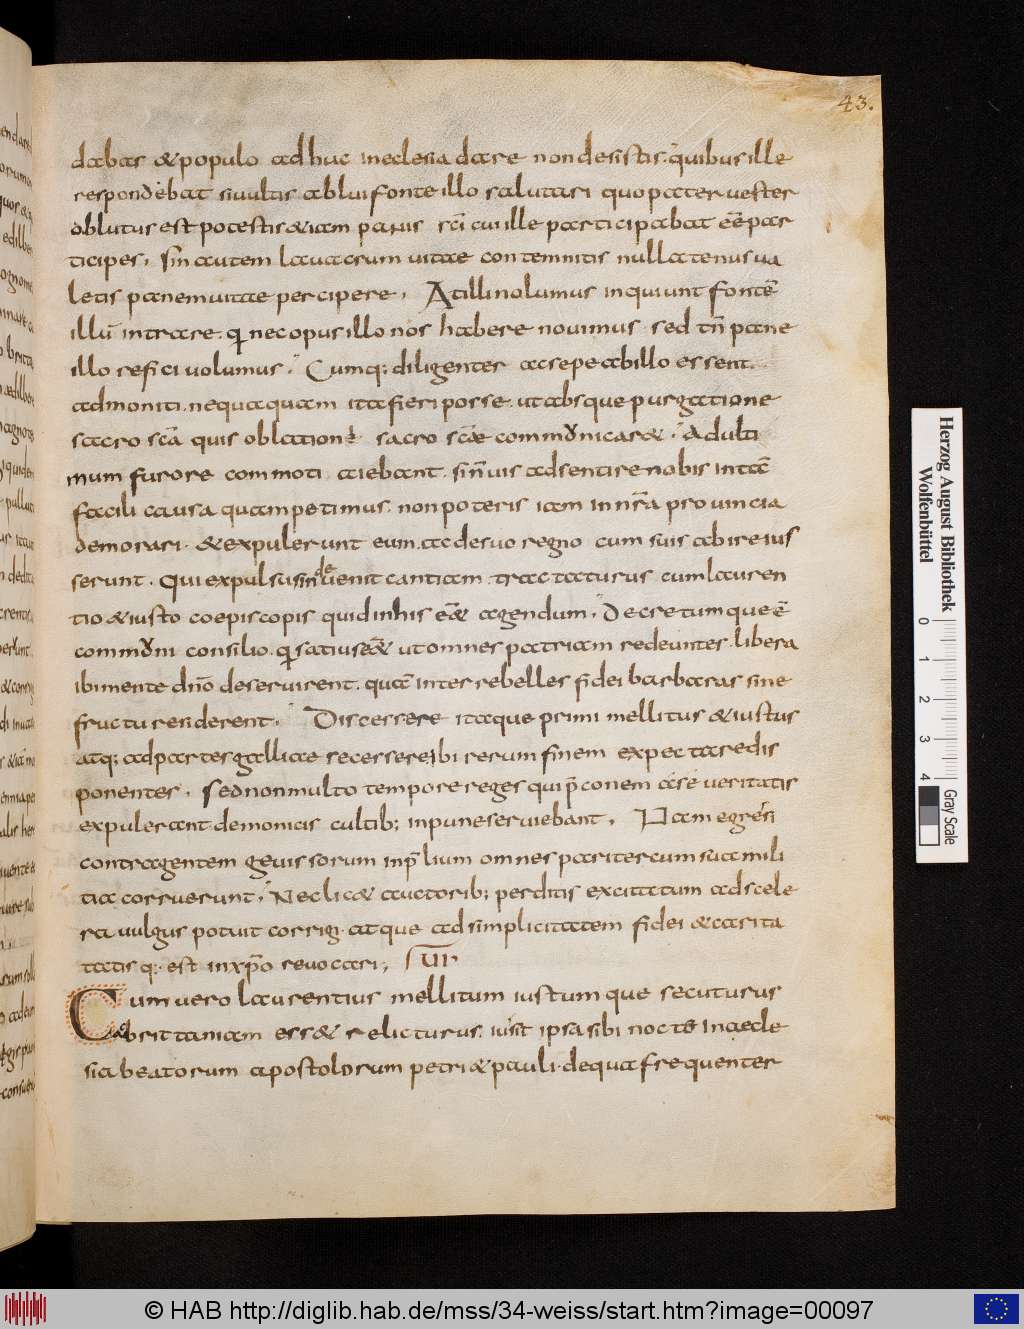 43.
dabas & populo adhuc in eclesia dare non desistis. quibus ille
respondebat si uultis ablui fonte illo salutari quo pater uester
oblutus est potestis & iam panis sc̄i cui ille participabat eē par
ticipes. sin autem lauacrum uitae contemnitis nullatenus ua
letis panem uitae percipere. At illi nolumus inquiunt fontē
illū intrare. q nec opus illo nos habere nouimus sed tn̄ pane
illo refici uolumus. Cumq; diligenter ac sepe ab illo essent
admoniti. nequaquam ita fieri posse. ut absque purgatione
sacro sc̄a quis oblatione sacro sc̄ae communicar&. Ad ulti
mum furore commoti aiebant. si n̄ uis adsentire nobis in tā
facili causa quam petimus. non poteris iam in nr̄a prouincia
demorari. & expulerunt eum. ac de suo regno cum suis abire ius
serunt. Qui expulsus inde uenit cantiam tractaturus cum lauren
tio & iusto coepiscopis quid in his eēt agendum. Decretumque ē
communi consilio. q satius eē& ut omnes patriam redeuntes. libera
ibi mente dn̄o deseruirent. quā inter rebelles fidei barbaras sine
fructu residerent. Discessere itaque primi mellitus & iustus
atq; ad partes galliae secessere ibi rerum finem expectare dis
ponentes. Sed non multo tempore reges qui p̄conem a se ueritatis
expulerant demonicis cultib; inpune seruiebant. Nam egressi
contra gentem geuissorum in p̄lium omnes pariter cum sua mili
tia corruerunt. Nec lic& auctorib; perditis excitatum ad scele
ra uulgus potuit corrigi. atque ad simplicitatem fidei & carita
tatis q; est in xp̄o reuocari;
Cum uero laurentius mellitum iustumque secuturus
ac brittaniam ess& relicturus. iusit ipsa sibi nocte in aecle
sia beatorum apostolorum petri & pauli. de qua frequenter
Herzog August Bibliothek
Wolfenbüttel
0 1 2 3 4
Gray Scale
© HAB http://diglib.hab.de/mss/34-weiss/start.htm?image=00097